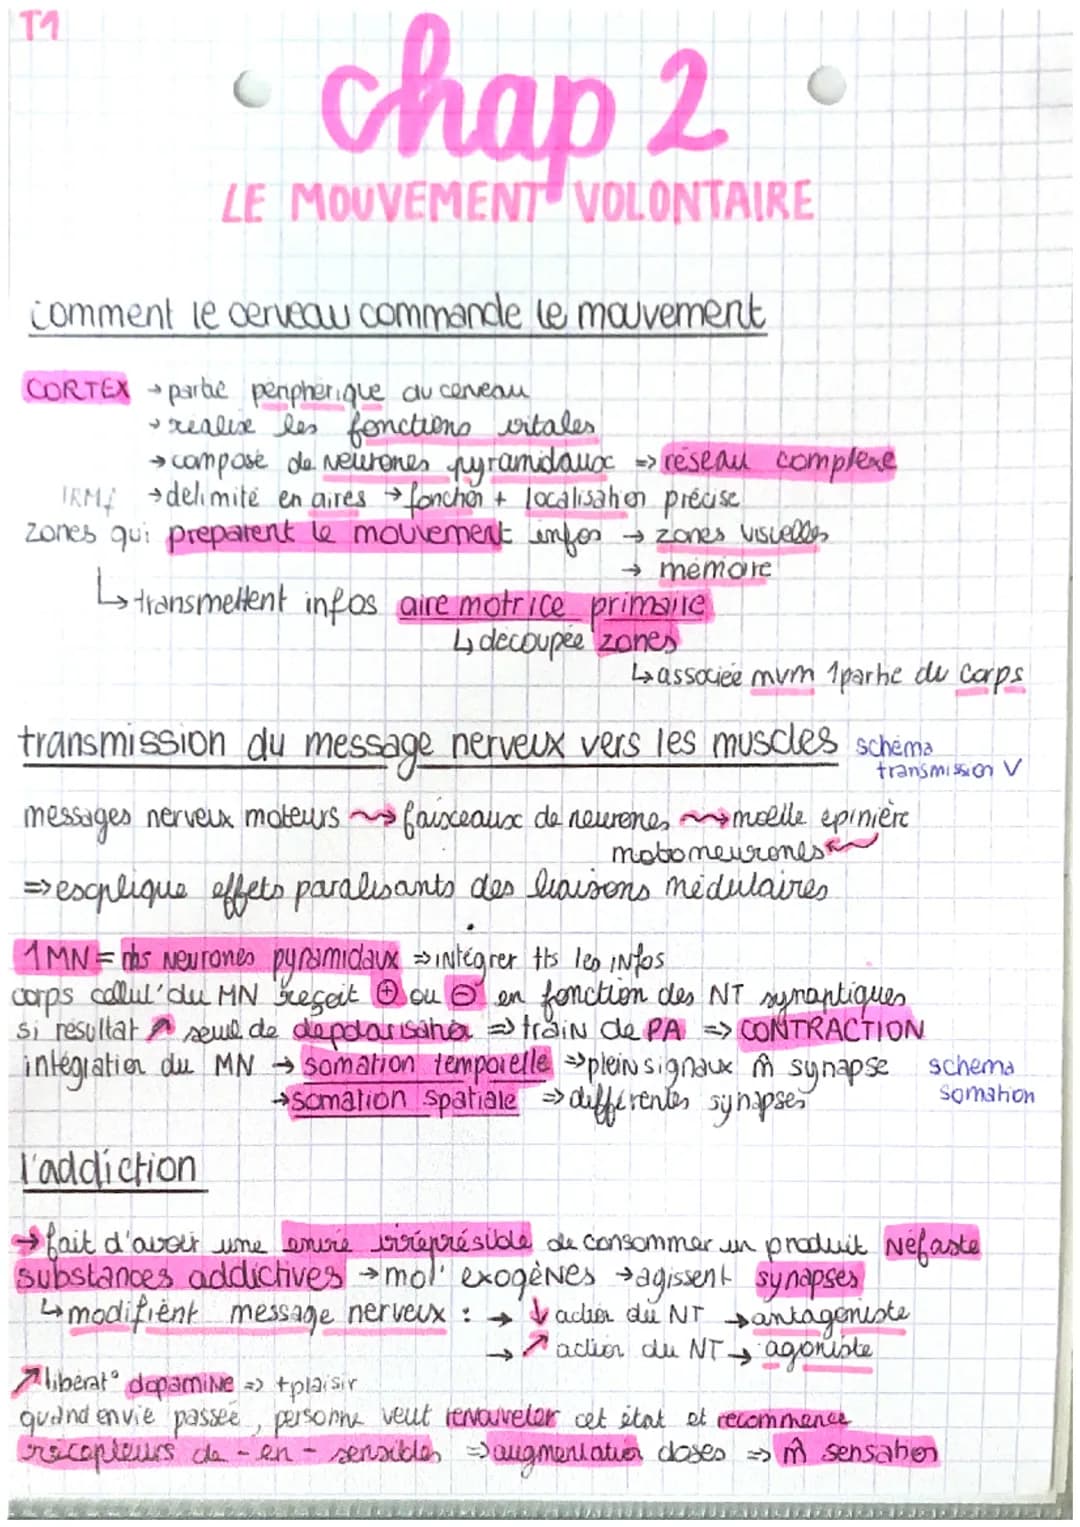 T1
chap 2
LE MOUVEMENT VOLONTAIRE
comment le cerveau commande le mouvement
CORTEX → partie périphérique du cerveau
→ réalise les fonctions vitales
→ composé de neurones pyramidaux => réseau complexe
IRMf → délimité en aires → fonction + localisation précise
zones qui préparent le mouvement infos → zones visuelles
→ mémoire
↳ transmettent infos aire motrice primaire
↳ découpée zones
↳ associée mvm 1 partie du corps
transmission du message nerveux vers les muscles schéma
transmission V
messages nerveux moteurs ⇝ faisceaux de neurones ⇝ moelle épinière
motoneurones
=> explique effets paralisants des liaisons médulaires
1 MN = nbs neurones pyramidaux => intégrer tts les infos
corps cellul' du MN reçoit ⊕ ou ⊖ en fonction des NT synaptiques
si résultat ↗ seuil de dépolarisation => train de PA => CONTRACTION
intégration du MN → somation temporelle => plein signaux m̂ synapse schéma
→ somation spatiale => différentes synapses somation
l'addiction
→ fait d'avoir une envie irréprésible de consommer un produit Néfaste
substances addictives → mol' exogènes → agissent synapses
↳ modifient message nerveux : → ↓ action du NT → antagoniste
→ ↗ action du NT → agoniste
↗ libérat° dopamine => + plaisir
quand envie passée, personne veut renouveler cet état et recommence
récepteurs de - en - sensibles => augmentation doses => m̂ sensation